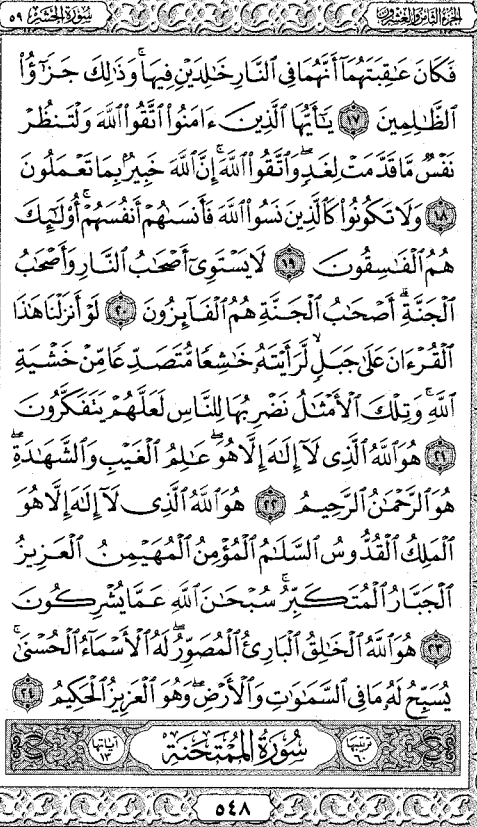 الجزء الثامن والعشرون سورة الحشر ٥٩
فَكَانَ عَٰقِبَتَهُمَآ أَنَّهُمَا فِي ٱلنَّارِ خَٰلِدَيْنِ فِيهَاۚ وَذَٰلِكَ جَزَٰٓؤُاْ
ٱلظَّٰلِمِينَ ١٧ يَٰٓأَيُّهَا ٱلَّذِينَ ءَامَنُواْ ٱتَّقُواْ ٱللَّهَ وَلْتَنظُرْ
نَفْسٌ مَّا قَدَّمَتْ لِغَدٍۖ وَٱتَّقُواْ ٱللَّهَۚ إِنَّ ٱللَّهَ خَبِيرُۢ بِمَا تَعْمَلُونَ
١٨ وَلَا تَكُونُواْ كَٱلَّذِينَ نَسُواْ ٱللَّهَ فَأَنسَىٰهُمْ أَنفُسَهُمْۚ أُوْلَٰٓئِكَ
هُمُ ٱلْفَٰسِقُونَ ١٩ لَا يَسْتَوِيٓ أَصْحَٰبُ ٱلنَّارِ وَأَصْحَٰبُ
ٱلْجَنَّةِۚ أَصْحَٰبُ ٱلْجَنَّةِ هُمُ ٱلْفَآئِزُونَ ٢٠ لَوْ أَنزَلْنَا هَٰذَا
ٱلْقُرْءَانَ عَلَىٰ جَبَلٍ لَّرَأَيْتَهُۥ خَٰشِعًا مُّتَصَدِّعًا مِّنْ خَشْيَةِ
ٱللَّهِۚ وَتِلْكَ ٱلْأَمْثَٰلُ نَضْرِبُهَا لِلنَّاسِ لَعَلَّهُمْ يَتَفَكَّرُونَ
٢١ هُوَ ٱللَّهُ ٱلَّذِي لَآ إِلَٰهَ إِلَّا هُوَۖ عَٰلِمُ ٱلْغَيْبِ وَٱلشَّهَٰدَةِۖ
هُوَ ٱلرَّحْمَٰنُ ٱلرَّحِيمُ ٢٢ هُوَ ٱللَّهُ ٱلَّذِي لَآ إِلَٰهَ إِلَّا هُوَ
ٱلْمَلِكُ ٱلْقُدُّوسُ ٱلسَّلَٰمُ ٱلْمُؤْمِنُ ٱلْمُهَيْمِنُ ٱلْعَزِيزُ
ٱلْجَبَّارُ ٱلْمُتَكَبِّرُۚ سُبْحَٰنَ ٱللَّهِ عَمَّا يُشْرِكُونَ
٢٣ هُوَ ٱللَّهُ ٱلْخَٰلِقُ ٱلْبَارِئُ ٱلْمُصَوِّرُۖ لَهُ ٱلْأَسْمَآءُ ٱلْحُسْنَىٰۚ
يُسَبِّحُ لَهُۥ مَا فِي ٱلسَّمَٰوَٰتِ وَٱلْأَرْضِۖ وَهُوَ ٱلْعَزِيزُ ٱلْحَكِيمُ ٢٤
ترتيبها ٦٠ سُورَةُ الْمُمْتَحَنَةِ آياتها ١٣
٥٤٨